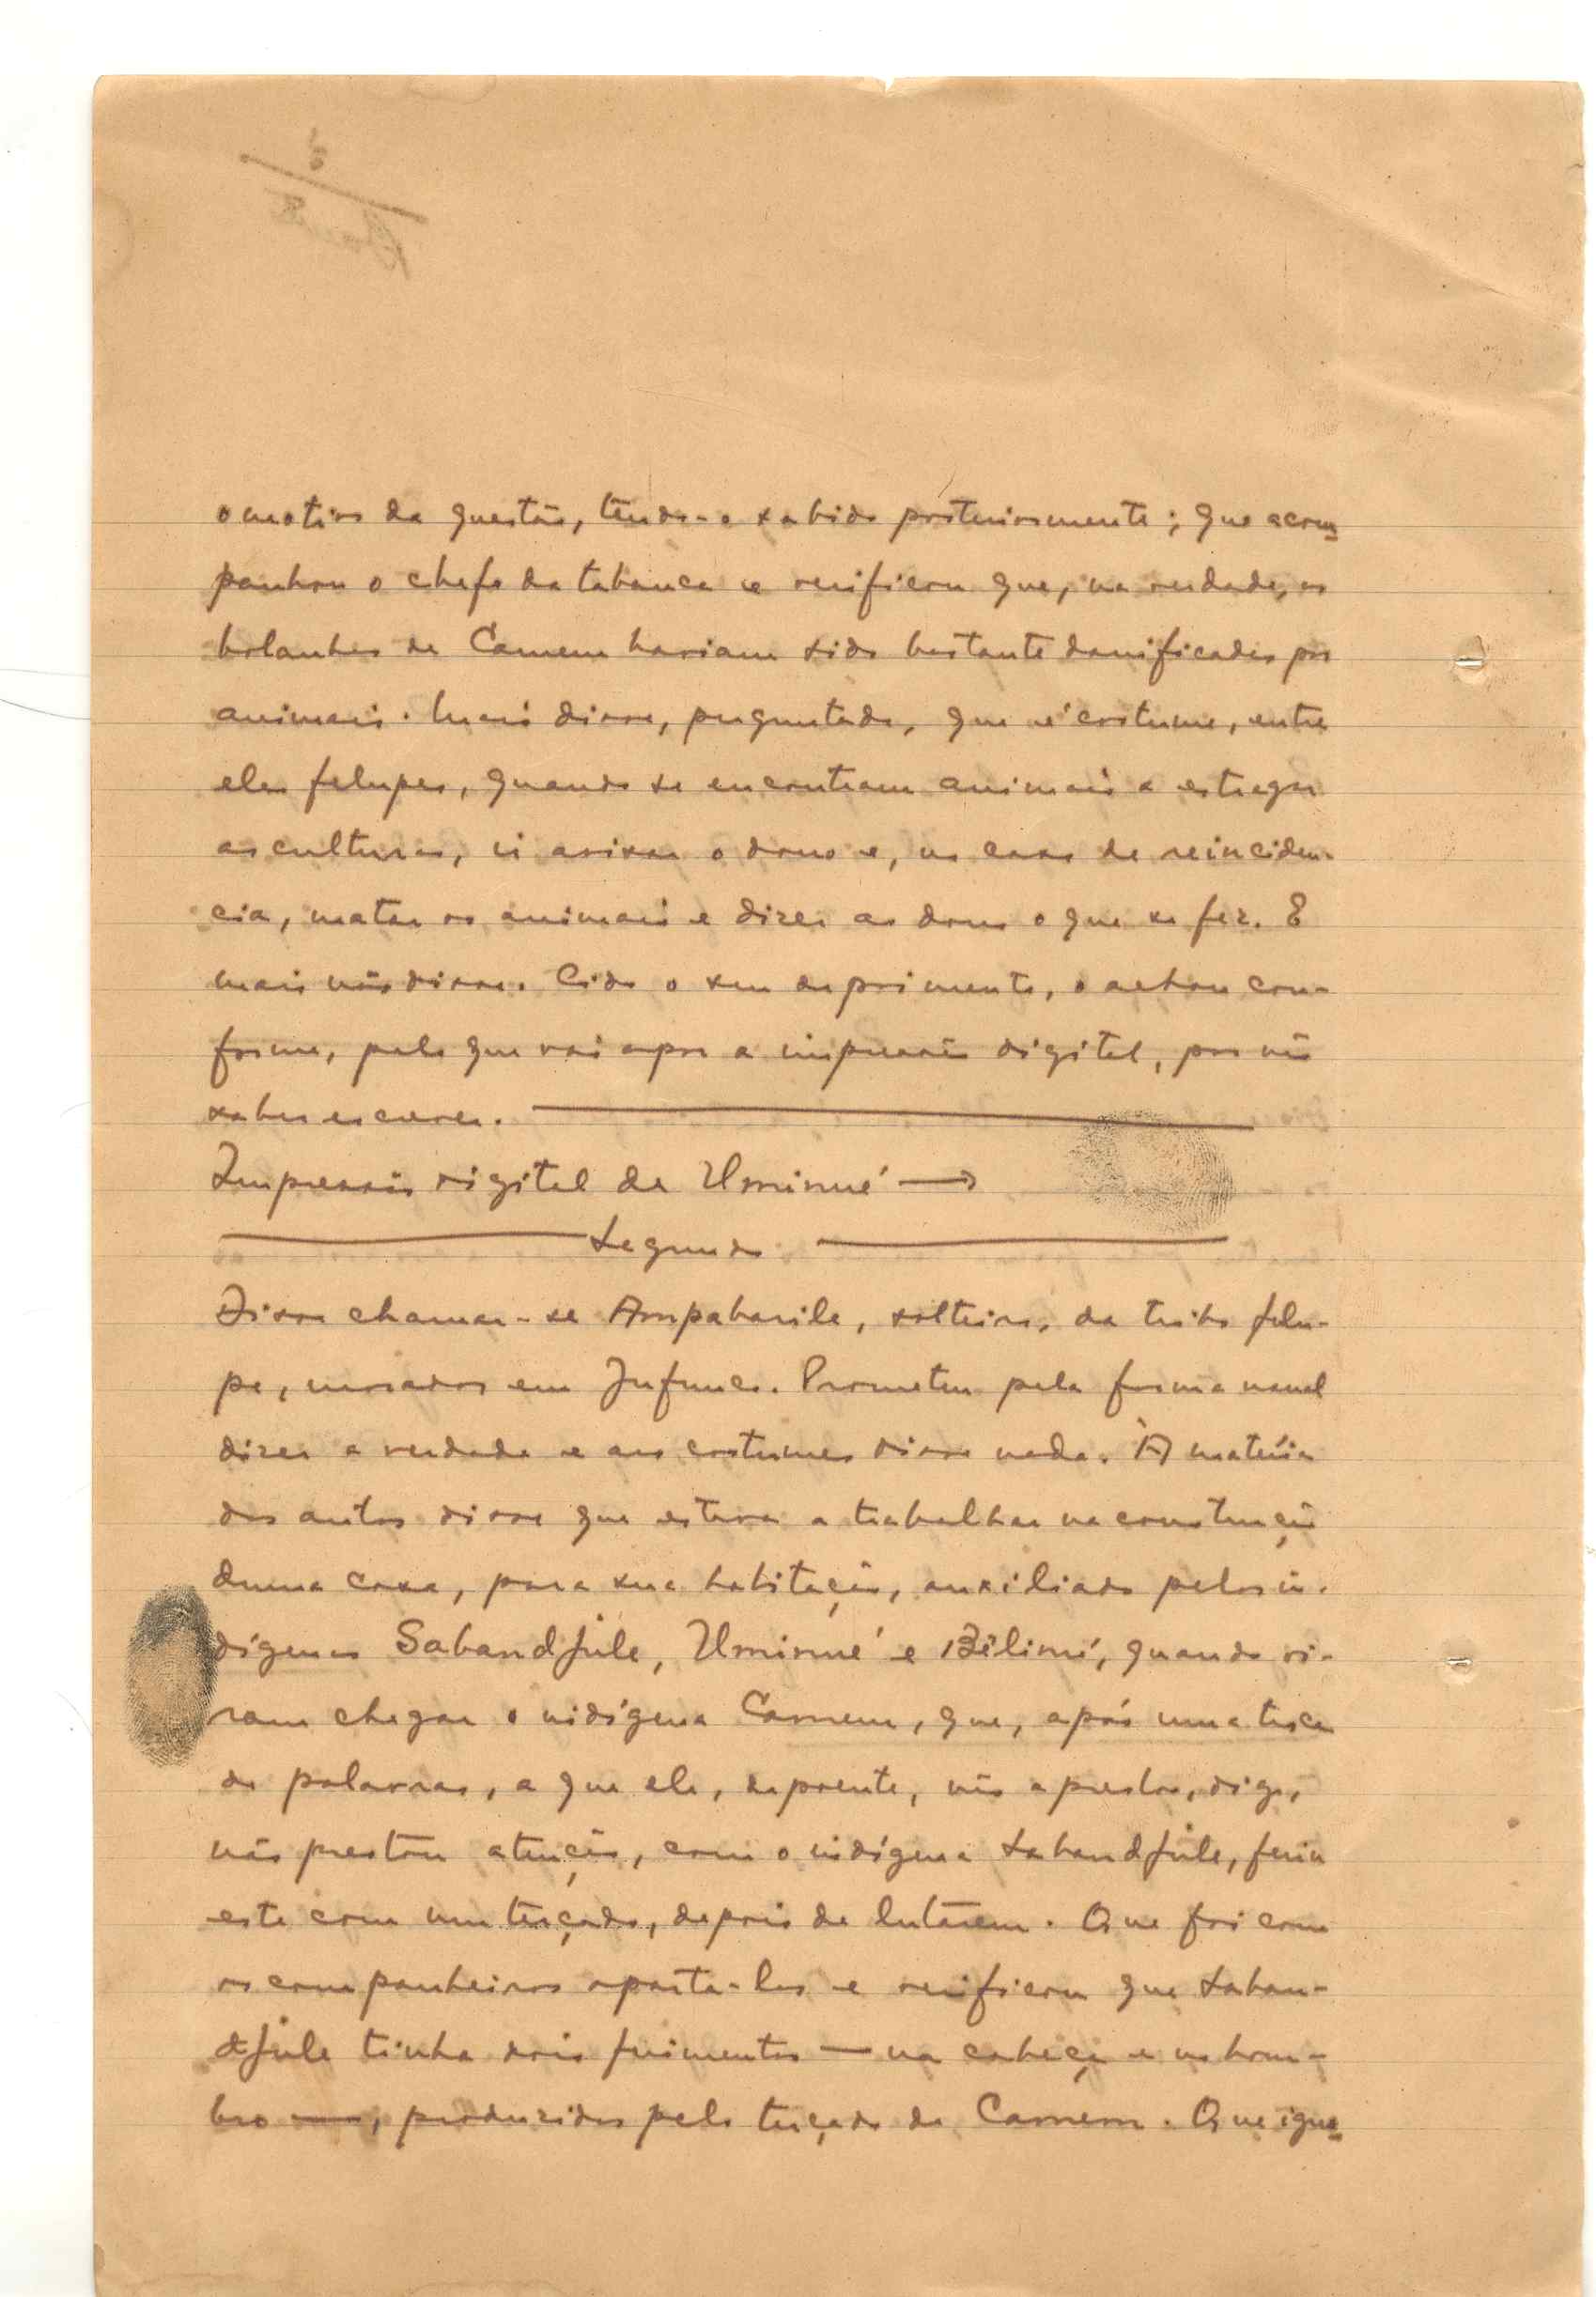 o motivo da questão, tendo-o sabido posteriormente; que acom
panhou o chefe da tabanca e verificou que, na verdade, as
bolanhas de Camem haviam sido bastante danificadas por
animais. Mais disse, perguntado, que é costume, entre
eles felupes, quando se encontram animais a estragar
as culturas, ir avisar o dono e, no caso de reinciden-
cia, matar os animais e dizer ao dono o que se fez. E
mais não disse. Lido o seu depoimento, o achou con-
forme, pelo que vai apor a impressão digital, por não
saber escrever.
Impressão digital de Uminué →
Segundo
Disse chamar-se Ampabarile, solteiro, da tribo felu-
pe, morador em Jufunco. Prometeu pela forma usual
dizer a verdade e aos costumes disse nada. À matéria
dos autos disse que estava a trabalhar na construção
duma casa, para sua habitação, auxiliado pelos in-
dígenas Sabandjule, Uminué e Bélimé, quando vi-
ram chegar o indígena Camem, que, após uma troca
de palavras, a que ele, depoente, não apresto, digo,
não prestou atenção, com o indígena Sabandjule, feriu
este com um terçado, depois de lutarem. Que foi com
os companheiros aparta-los e verificou que Saban-
djule tinha dois ferimentos — na cabeça e no hom-
bro —, produzidos pelo terçado de Camem. Que igno